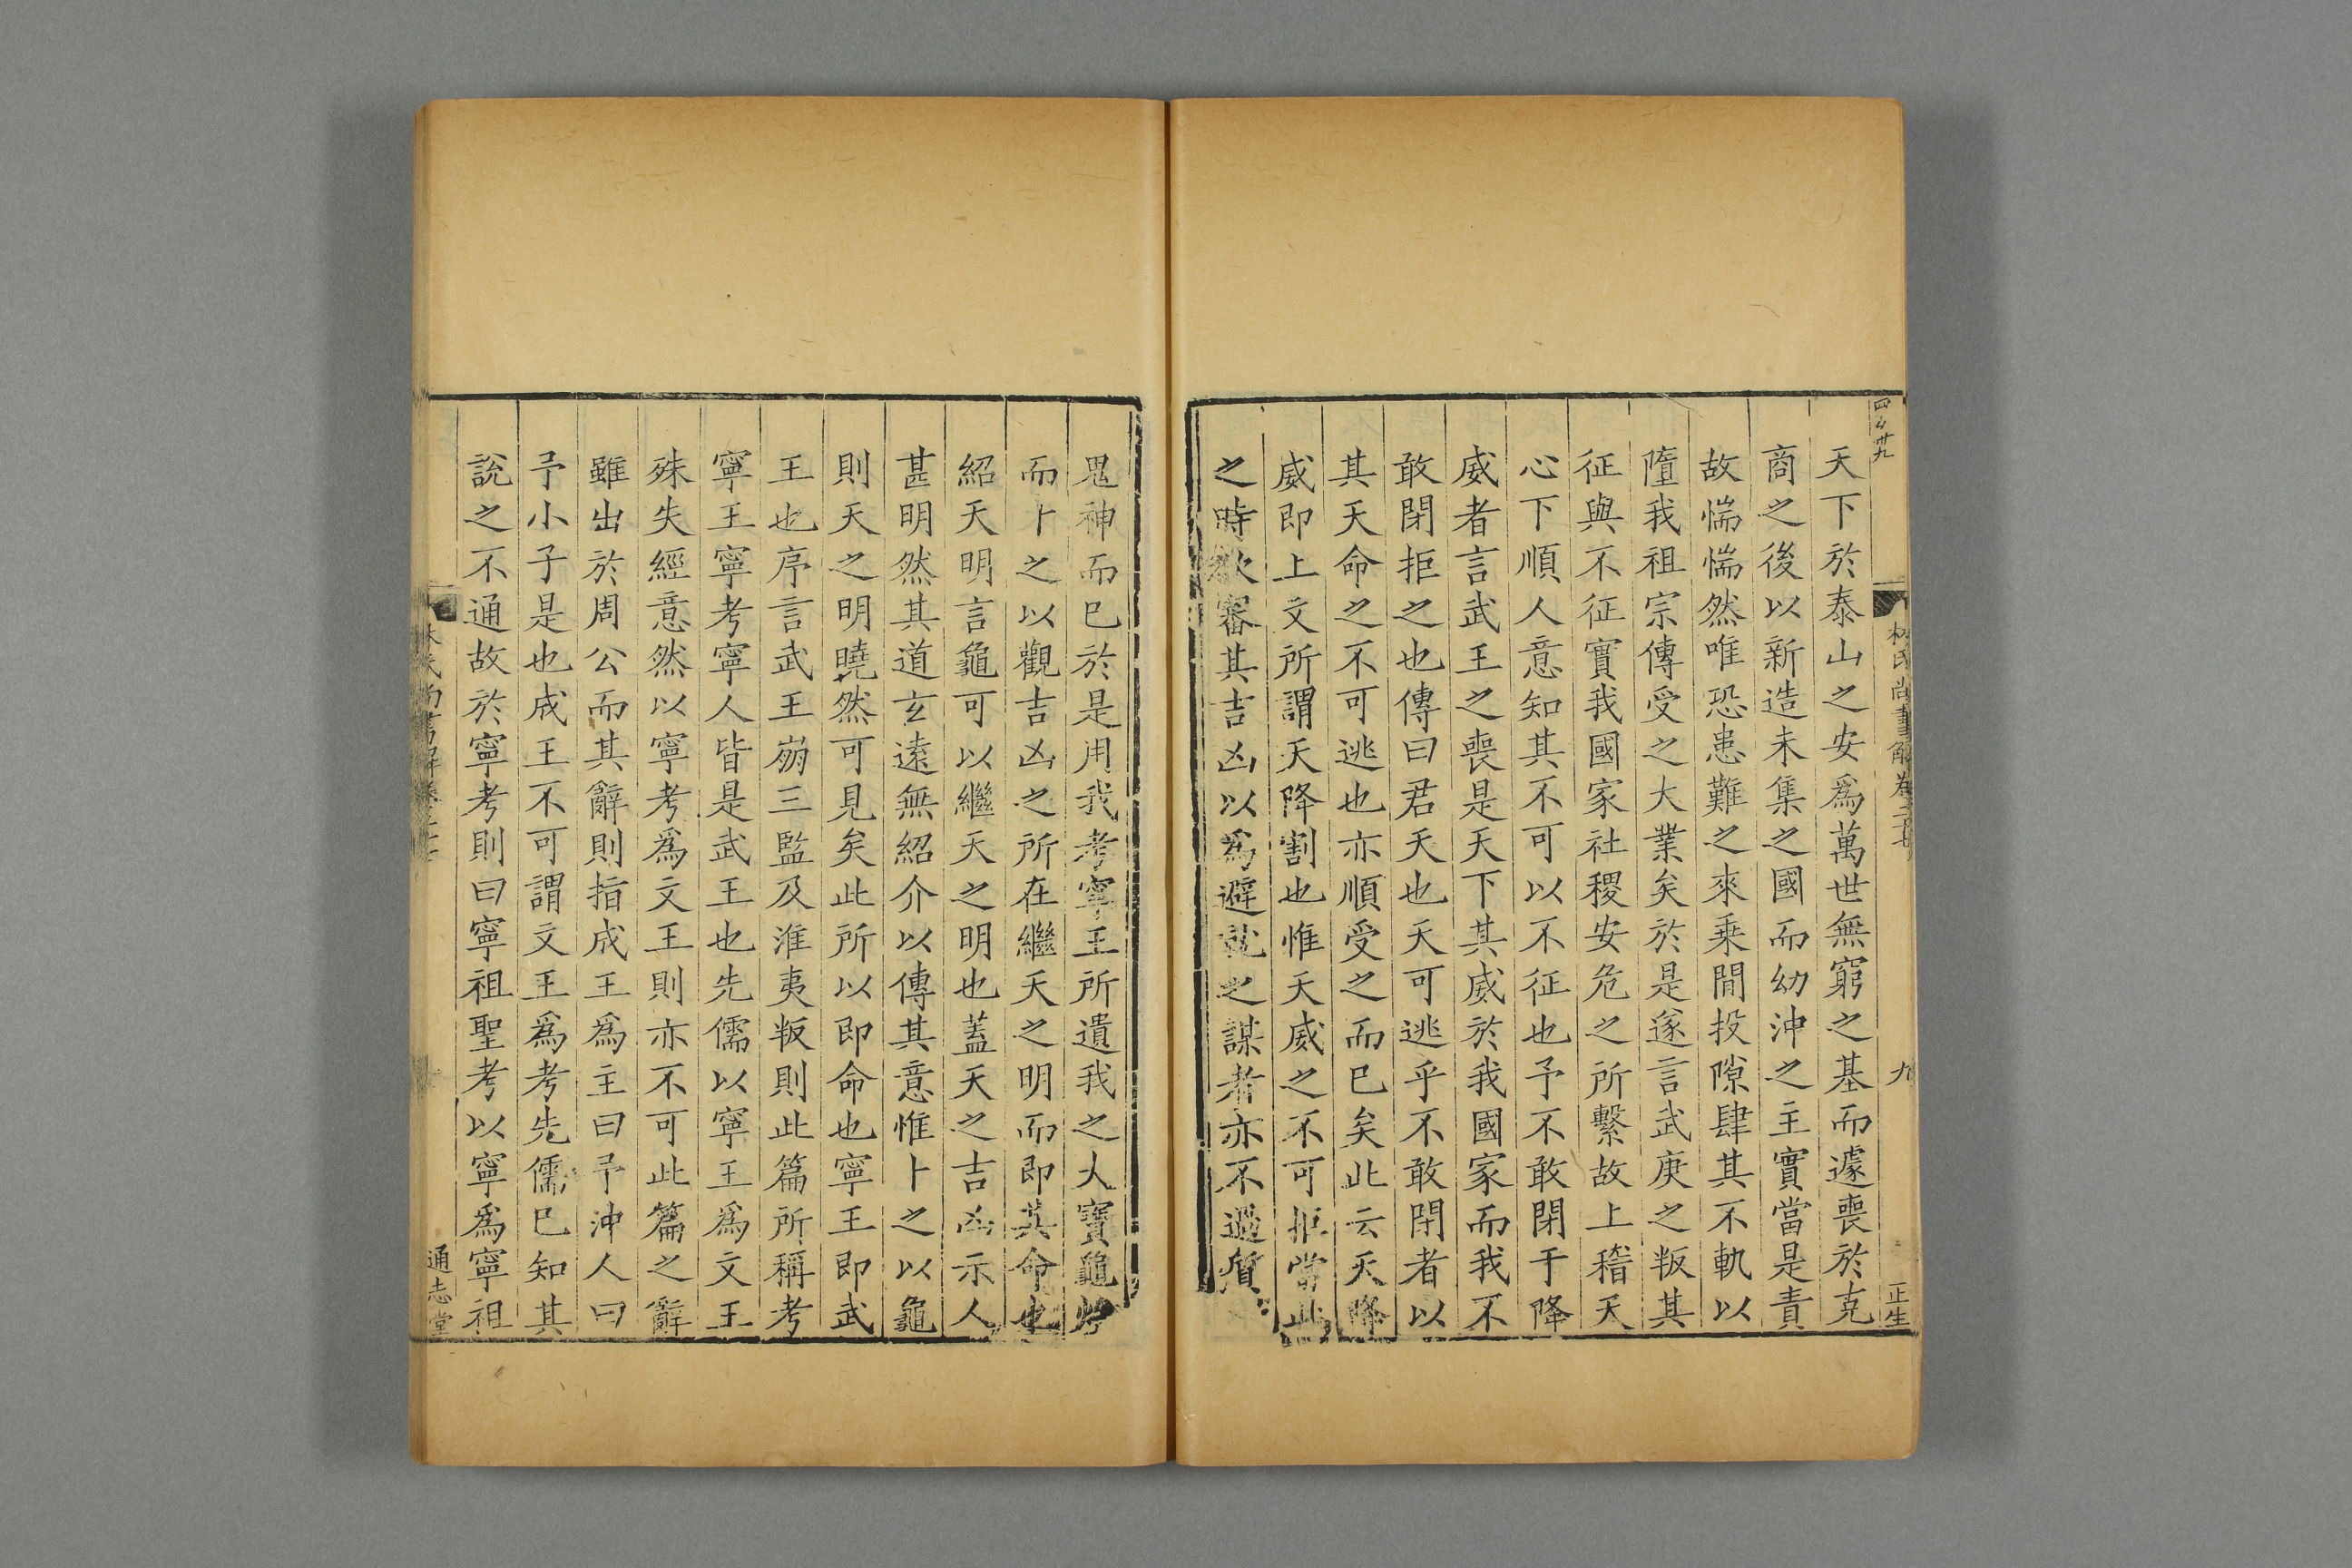 四百廿九
林氏尚書解卷二十七
九
正生
天下於泰山之安爲萬世無窮之基而遽喪於克
商之後以新造未集之國而幼沖之主實當是責
故惴惴然唯恐患難之來乗閒投隙肆其不軌以
墮我祖宗傳受之大業矣於是遂言武庚之叛其
征與不征實我國家社稷安危之所繫故上稽天
心下順人意知其不可以不征也予不敢閉于降
威者言武王之喪是天下其威於我國家而我不
敢閉拒之也傳曰君天也天可逃乎不敢閉者以
其天命之不可逃也亦順受之而已矣此云天降
威即上文所謂天降割也惟天威之不可拒當此
之時欲審其吉凶以爲避就之謀者亦不過質
鬼神而已於是用我考寧王所遺我之大寶龜
而卜之以觀吉凶之所在繼天之明而即其命也
紹天明言龜可以繼天之明也蓋天之吉凶示人
甚明然其道玄遠無紹介以傳其意惟卜之以龜
則天之明曉然可見矣此所以即命也寧王即武
王也序言武王崩三監及淮夷叛則此篇所稱考
寧王寧考寧人皆是武王也先儒以寧王爲文王
殊失經意然以寧考爲文王則亦不可此篇之辭
雖出於周公而其辭則指成王爲主曰予沖人曰
予小子是也成王不可謂文王爲考先儒已知其
說之不通故於寧考則曰寧祖聖考以寧爲寧祖
通志堂